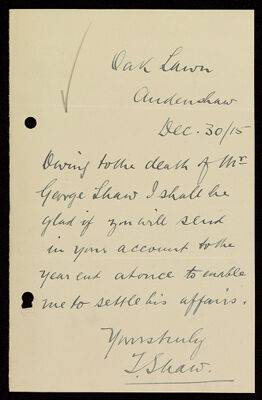 Oak Lawn
Audenshaw
Dec. 30/15
Owing to the death of Mr
George Shaw I shall be
glad if you will send
in your account to the
year end at once to enable
me to settle his affairs.
Yours truly
T. Shaw.